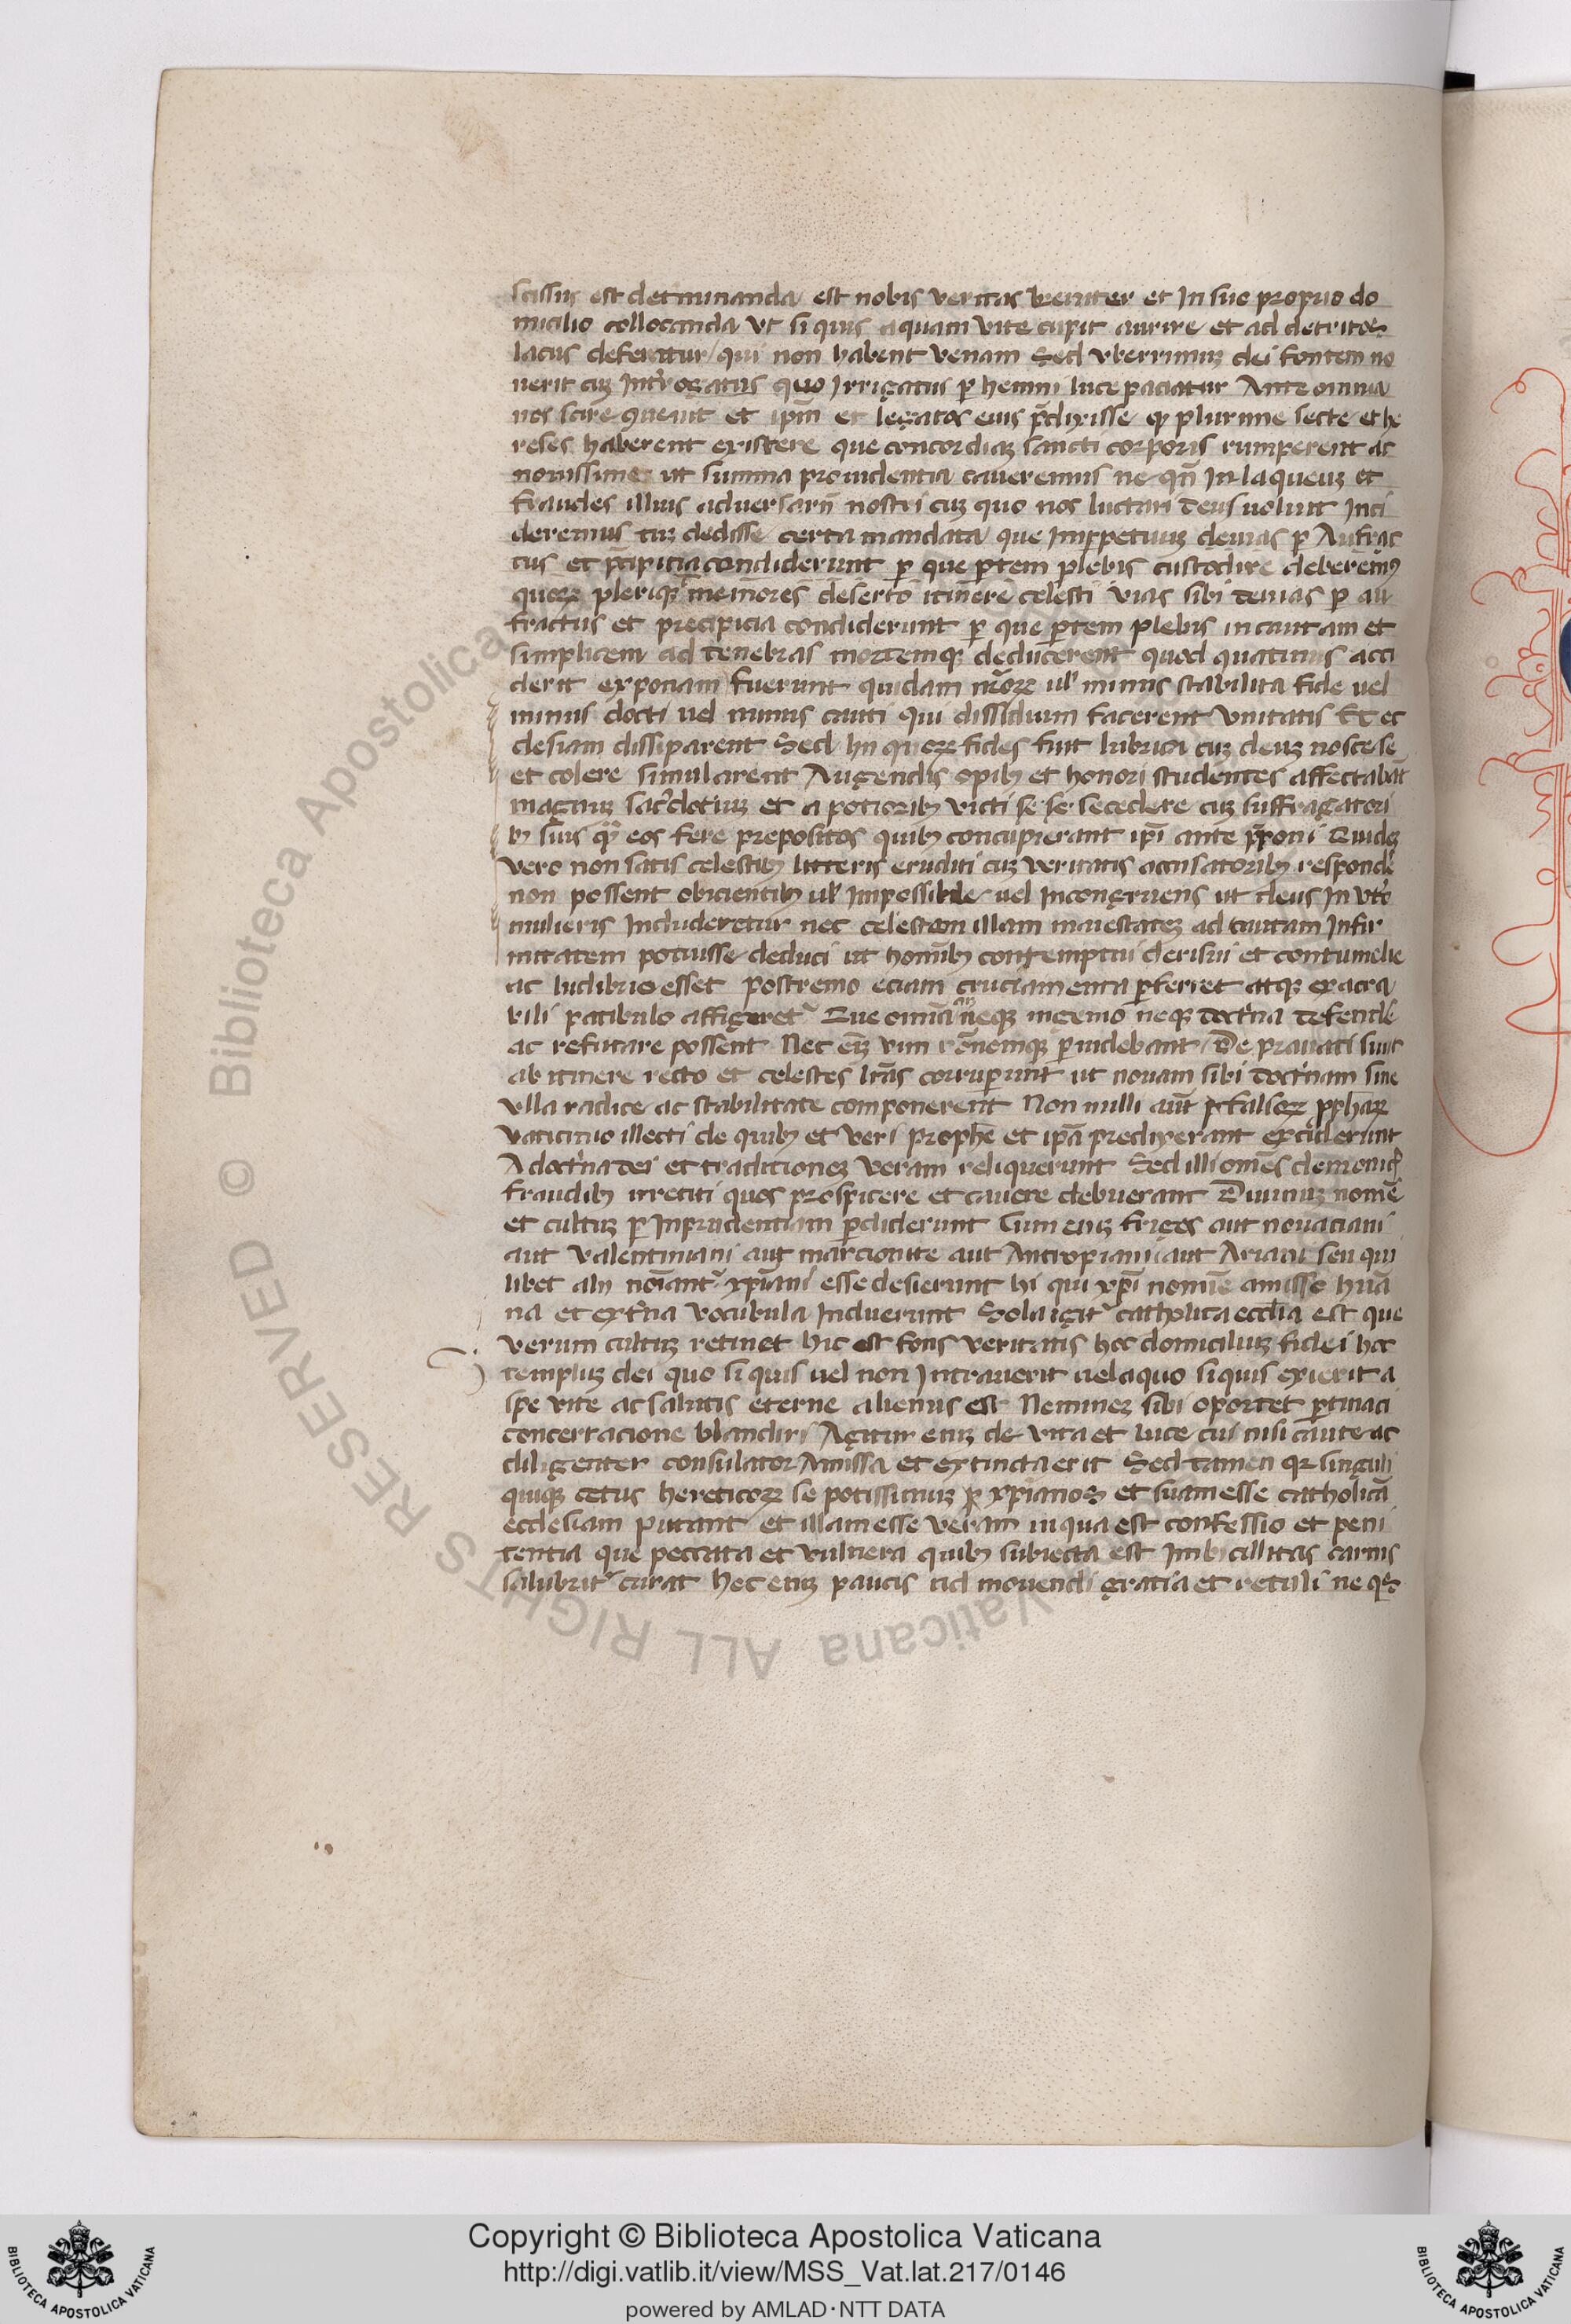 scissus est det̄minanda est nobis veritas breuiter et In suo proprio do
micilio collocanda Vt si quis aquam vite cupit aurire et ad detritos
lacus deferatur qui non habent venam Sed vberrimuꝫ dei fontem no
uerit cuꝫ Int̄rogatus quo Irrigatus ꝑhenni luce paciatur Ante omnia
nos scire et ip̄m et legatos eius p̄dixisse ꝙ plurime secte et he
reses haberent existere que concordiaꝫ sancti corporis rumperent ac
nouissime ut summa prouidentia caueremus ne qn̄ In laqueuꝫ et
fraudes illius aduersarii nostri cuꝫ quo nos luctari deus uoluit Inci
deremus tuꝫ dedisse certa mandata que Imꝑpetuuꝫ deuias ꝑ Anfrac
tus et p̄cipitia condiderunt ꝑ que ꝑtem plebis custodire deberemꝰ
quoꝝ pleriqꝫ memores deserto itinere celesti vias sibi deuias ꝑ an
fractus et precipicia condiderunt ꝑ que ꝑtem plebis incautam et
simplicem ad tenebras mortemqꝫ deducerent quod quatinus acci
derit exponam fuerunt quidam nr̄oꝝ ul̉ minus stabilita fide uel
minus docti uel minus cauti qui dissidium facerent vnitatis Et ec
clesiam dissiparent Sed hii quoꝝ fides fuit lubrica cuꝫ deuꝫ nosce se
et colere simularent Augendis opibꝫ et honori studentes affectabāt
magnuꝫ sac̄dotiuꝫ et a potioribꝫ victi se se secedere cuꝫ suffragatori
bꝫ suis eos fere prepositos quibꝫ concupierant ip̄i ante p̄poni Quidaꝫ
vero non satis celestibꝫ litteris eruditi cuꝫ veritatis accusatoribꝫ respondē
non possent obicientibꝫ ul̉ Impossibile uel Incongruens ut deus In vtō
mulieris Includeretur nec celestem illam maiestateꝫ ad tantam Infir
mitatem potuisse deduci ut homībꝫ contemptui derisui et contumelie
ac ludibrio esset postremo eciam cruciamenta ꝑferret atqꝫ exacra
bili patibulo affigeret᷑ Que omīa neqꝫ ingenio neqꝫ doct̄na defendē
ac refutare possent Nec eīꝫ vim rōnemqꝫ ꝑuidebant De prauati sunt
ab itinere recto et celestes lr̄as corruperunt ut nouam sibi doct̄nam sine
vlla radice ac stabilitate componerent Non nulli aūt falsoꝝ ꝓphaꝝ
vaticinio illecti de quibꝫ et veri prophē et ip̄a predixerant exciderunt
A doct̄na dei et traditioneꝫ veram reliquerunt Sed illi om̄es demonicꝭ
fraudibꝫ irretiti quos prospicere et cauere debuerant Diuinuꝫ nomē
et cultuꝫ ꝑ Inprudentiam ꝑdiderunt Cum eniꝫ friges aut nouaciani
aut valentiniani aut marcionite aut Antropiani aut Ariani seu qui
libet alii noīant᷑ xp̄iani esse desierunt hi qui xp̄i nomīe amisso hūa
na et ext̄na vocabula Induerunt Sola igit᷑ catholica eccl̄ia est que
verum cultuꝫ retinet hic est fons veritatis hoc domiciliuꝫ fidei hoc
templuꝫ dei quo si quis uel non Intrauerit uel a quo si quis exierit a
spe vite ac salutis eterne alienus est Nemineꝫ sibi oportet ꝑtinaci
concertacione blandiri Agitur eniꝫ de vita et luce cui nisi caute ac
diligenter consulator Amissa et extincta erit Sed tamen qꝛ singuli
quiqꝫ cetus hereticoꝝ se potissimuꝫ ꝑ xp̄ianos et suam esse catholicā
ecclesiam putant et illam esse veram in qua est confessio et peni
tentia que peccata et vulnera quibꝫ subiecta est Imbecillitas carnis
salubrit᷑ curat hec eniꝫ paucis ad mouendi gratia et retuli ne qͥs
Copyright © Biblioteca Apostolica Vaticana
http://digi.vatlib.it/view/MSS_Vat.lat.217/0146
powered by AMLAD·NTT DATA
BIBLIOTECA APOSTOLICA VATICANA
BIBLIOTECA APOSTOLICA VATICANA
© Biblioteca Apostolica Vaticana ALL RIGHTS RESERVED